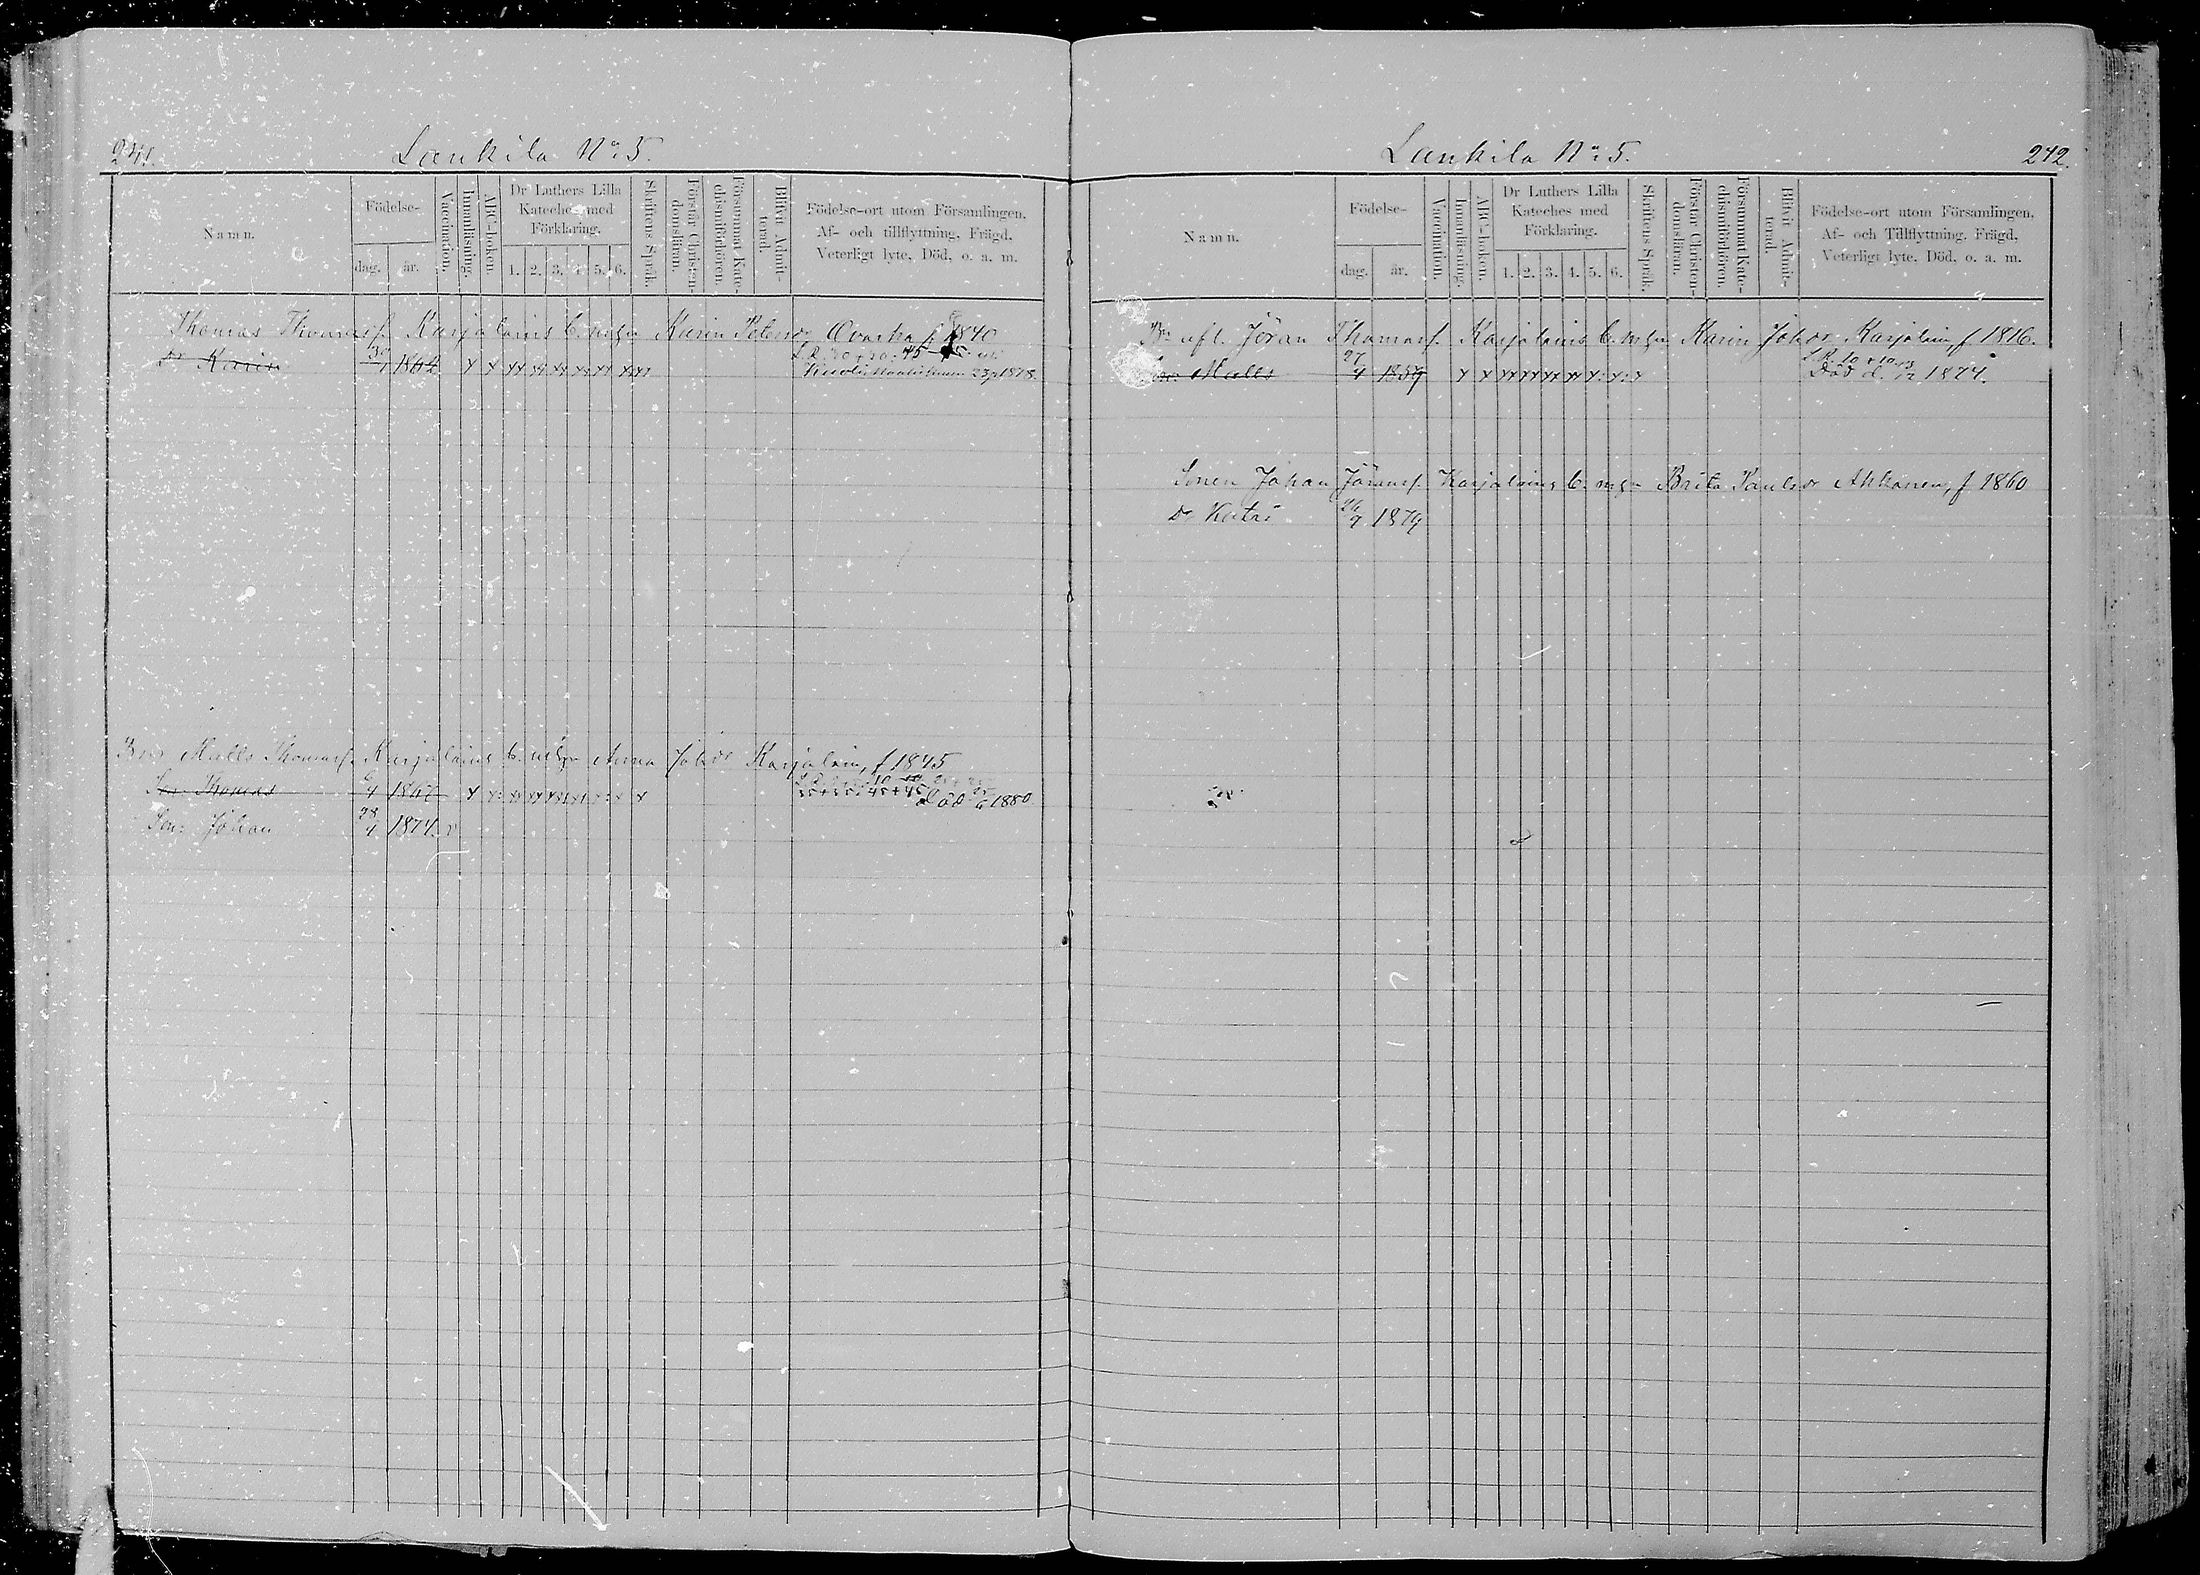 241.
Lankila No 5.
Namn.
Födelse-
dag.
år.
Vaccination.
Innanläsning.
ABC-boken.
Dr Luthers Lilla
Kateches med
Förklaring.
1. 2. 3. 4. 5. 6.
Skriftens Språk.
Förstår Christen-
domsläran.
Försummat Kate-
chismiförhören.
Blifvit Admit-
terad.
Födelse-ort utom Församlingen,
Af- och tillflyttning, Frägd,
Veterligt lyte, Död, o. a. m.
Thomas Thomasf. Karjalains b. m. hu Karin Petersdr Ovaska f. 1840
Dr Karin 1864
1878.
Bror Matts Thomasf. Karjalains b. m. hu Anna Johdr Karjalain, f 1845
Son: Thomas 1867 Död 1880
Son: Johan 28/4 1874. v
Lankila No 5.
242.
Namn.
Födelse-
dag.
år.
Vaccination.
Innanläsning.
ABC-boken.
Dr Luthers Lilla
Kateches med
Förklaring.
1. 2. 3. 4. 5. 6.
Skriftens Språk.
Förstår Christen-
domsläran.
Försummat Kate-
chismiförhören.
Blifvit Admit-
terad.
Födelse-ort utom Församlingen,
Af- och Tillflyttning, Frägd,
Veterligt lyte, Död, o. a. m.
Br afl. Jöran Thomasf. Karjalains b. m. hu Karin Johdr Karjalain f 1816.
Son: Matts 27/4 1859 Död d. 1874.
Sonen Johan Jöransf. Karjalains b. m. hu Brita Paulsdr Ahkanen, f 1860
Dr Katri 1879